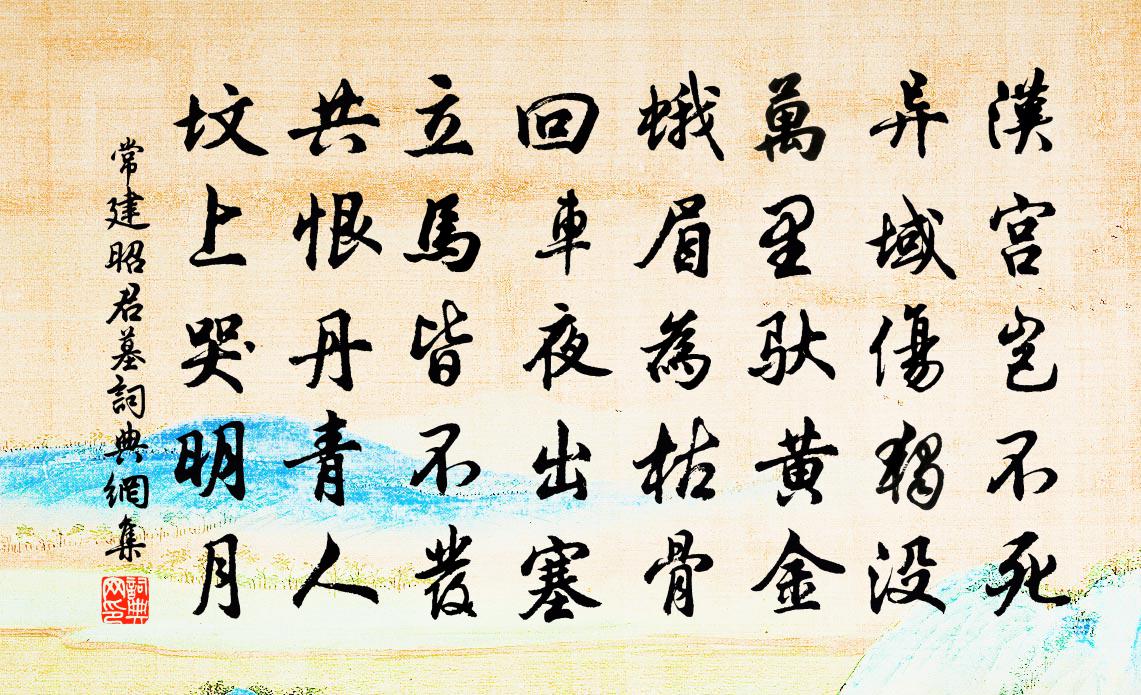 漢宫岂不死
异域傷獨没
萬里馱黄金
蛾眉為枯骨
回車夜出塞
立馬皆不發
共恨丹青人
坟上哭明月
常建昭君墓詞典網集
詞典
网印